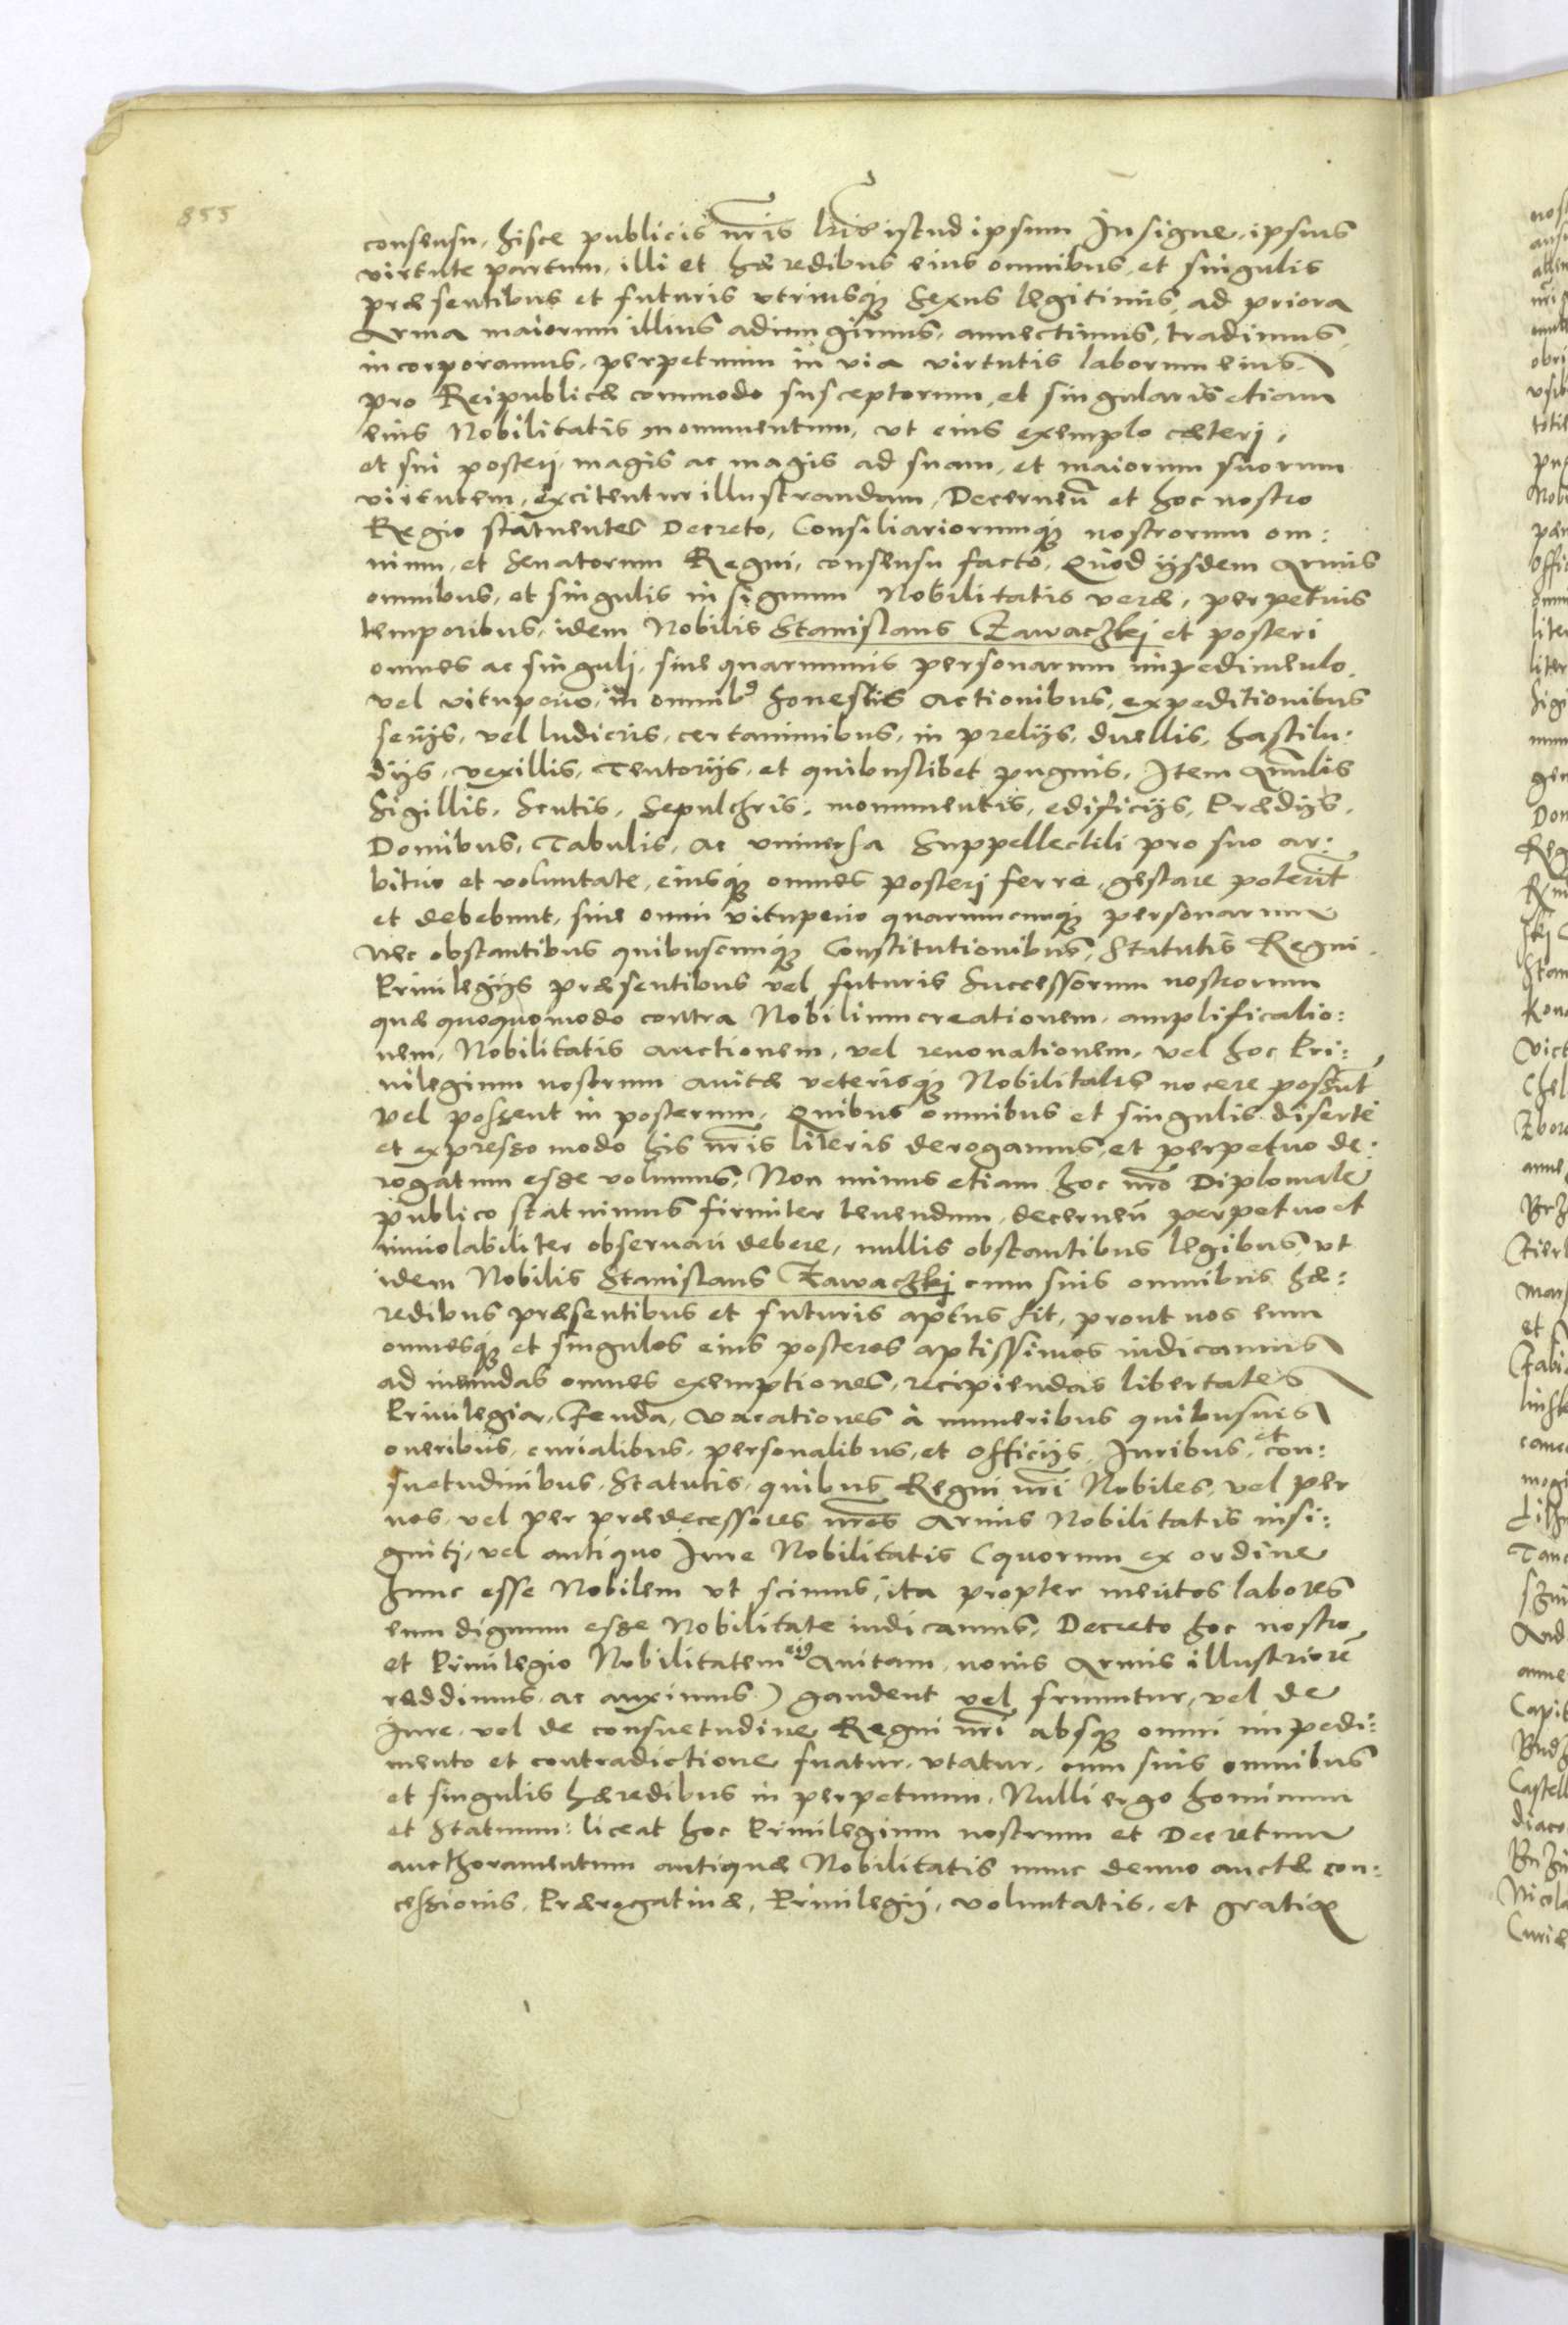 855
consensu, hisce publicis nr̃is lr̃is istud ipsum Insigne, ipsius
virtute partum, illi et hæredibus eius omnibus, et singulis
præsentibus et futuris vtriusq; Sexus legitimis, ad priora
Arma maiorum illius adiungimus, annectimus, tradimus,
incorporamus, perpetuum in via virtutis laborum eius
pro Reipublicæ commodo susceptorum, et singularis etiam
eius Nobilitatis monumentum, vt eius exemplo cæteri,
et sui posteri, magis ac magis ad suam, et maiorum suorum
virtutem, excitentur illustrandam, Decerneñ et hoc nostro
Regio statuentes Decreto, Consiliariorumq; nostrorum om:
nium, et Senatorum Regni, consensu facto, Quod ijsdem Armis
omnibus, et singulis in signum Nobilitatis veræ, perpetuis
temporibus, idem Nobilis Stanislaus Zawaczkj et posteri
omnes ac singulj, sine quarumuis personarum impedimento,
vel vituperio, in omnib9 honestis Actionibus, expeditionibus
serijs, vel ludicris, certaminibus, in prelijs, duellis, hastilu:
dijs, vexillis, Tentorijs, et quibuslibet pugnis, Item Annulis
Sigillis, Scutis, Sepulchris, monumentis, edificijs, Prædijs,
Domibus, Tabulis, ac vniuersa Suppellectili pro suo ar:
bitrio et voluntate, eiusq; omnes posterj ferre, gestare poterũt
et debebunt, sine omni vituperio quarumcunq; personarum
Nec obstantibus quibuscunq; Constitutionibus, Statutis Regni
Priuilegijs præsentibus vel futuris Successorum nostrorum
quæ quoquomodo contra Nobilium creationem, amplificatio:
nem, Nobilitatis auctionem, vel renouationem, vel hoc Pri:
uilegium nostrum auitæ veterisq; Nobilitatis nocere possũt
vel possent in posterum, Quibus omnibus et singulis diserte
et expresso modo his nr̃is literis derogamus, et perpetuo de:
rogatum esse volumus, Non minus etiam hoc nr̃o Diplomate
publico statuimus firmiter tenendum, decerneñ perpetuo et
inuiolabiliter obseruari debere, nullis obstantibus legibus, vt
idem Nobilis Stanislaus Zawaczkj cum suis omnibus hæ:
redibus præsentibus et futuris aptus sit, prout nos eum
omnesq; et singulos eius posteros aptissimos iudicamus
ad ineundas omnes exemptiones, recipiendas libertates
Priuilegia, Feuda, Vacationes à muneribus quibusuis
oneribus, curialibus, personalibus, et Officijs, Iuribus, et con:
suetudinibus, Statutis, quibus Regni nr̃i Nobiles, vel per
nos, vel per prædecessores nr̃os Armis Nobilitatis insi:
gnitj, vel antiquo Iure Nobilitatis (quorum ex ordine
hunc esse Nobilem vt scimus, ita propter meritos labores
eum dignum esse Nobilitate iudicamus, Decreto hoc nostro
et Priuilegio Nobilitatem ei9 Auitam, nouis Armis illustriorẽ
reddimus, ac auximus) gaudent vel fruuntur, vel de
Iure, vel de consuetudine Regni nr̃i absq; omni impedi:
mento et contradictione fruatur, vtatur, cum suis omnibus
et singulis hæredibus in perpetuum, Nulli ergo hominum
et Statuum: liceat hoc Priuilegium nostrum et Decretum
authoramentum antiquæ Nobilitatis nunc denuo auctæ con:
cessionis, Prærogatiuæ, Priuilegij, voluntatis, et gratiæ